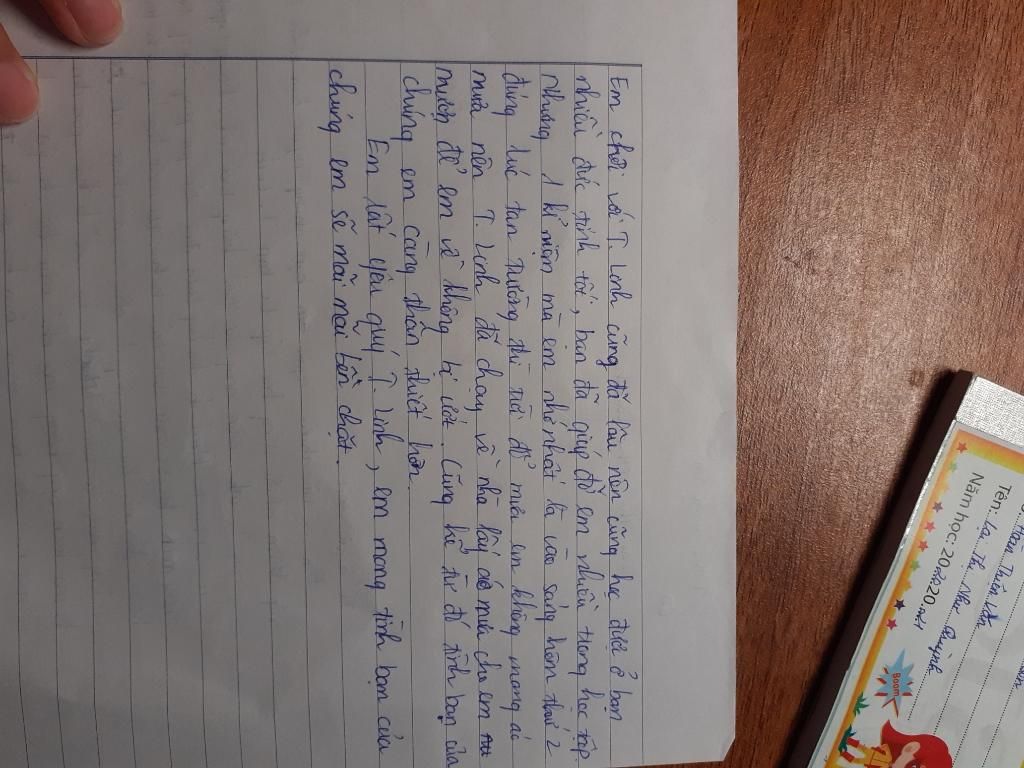 Em chơi với T. Linh cũng đã lâu nên cũng học được ở bạn
nhiều đức tính tốt, bạn đã giúp đỡ em nhiều trong học tập
Nhưng 1 kỉ niệm mà em nhớ nhất là vào sáng hôm thứ 2
đúng lúc tan trường thì trời đổ mưa em không mang áo
mưa nên T. Linh đã chạy về nhà lấy áo mưa cho em
mượn để em về không bị ướt. Cũng kể từ đó tình bạn của
chúng em càng thân thiết hơn.
Em rất yêu quý T Linh, em mong tình bạn của
chúng em sẽ mãi mãi bền chặt.
Toán
Tên: La Thị Như Quỳnh
Năm học: 2020
Boom